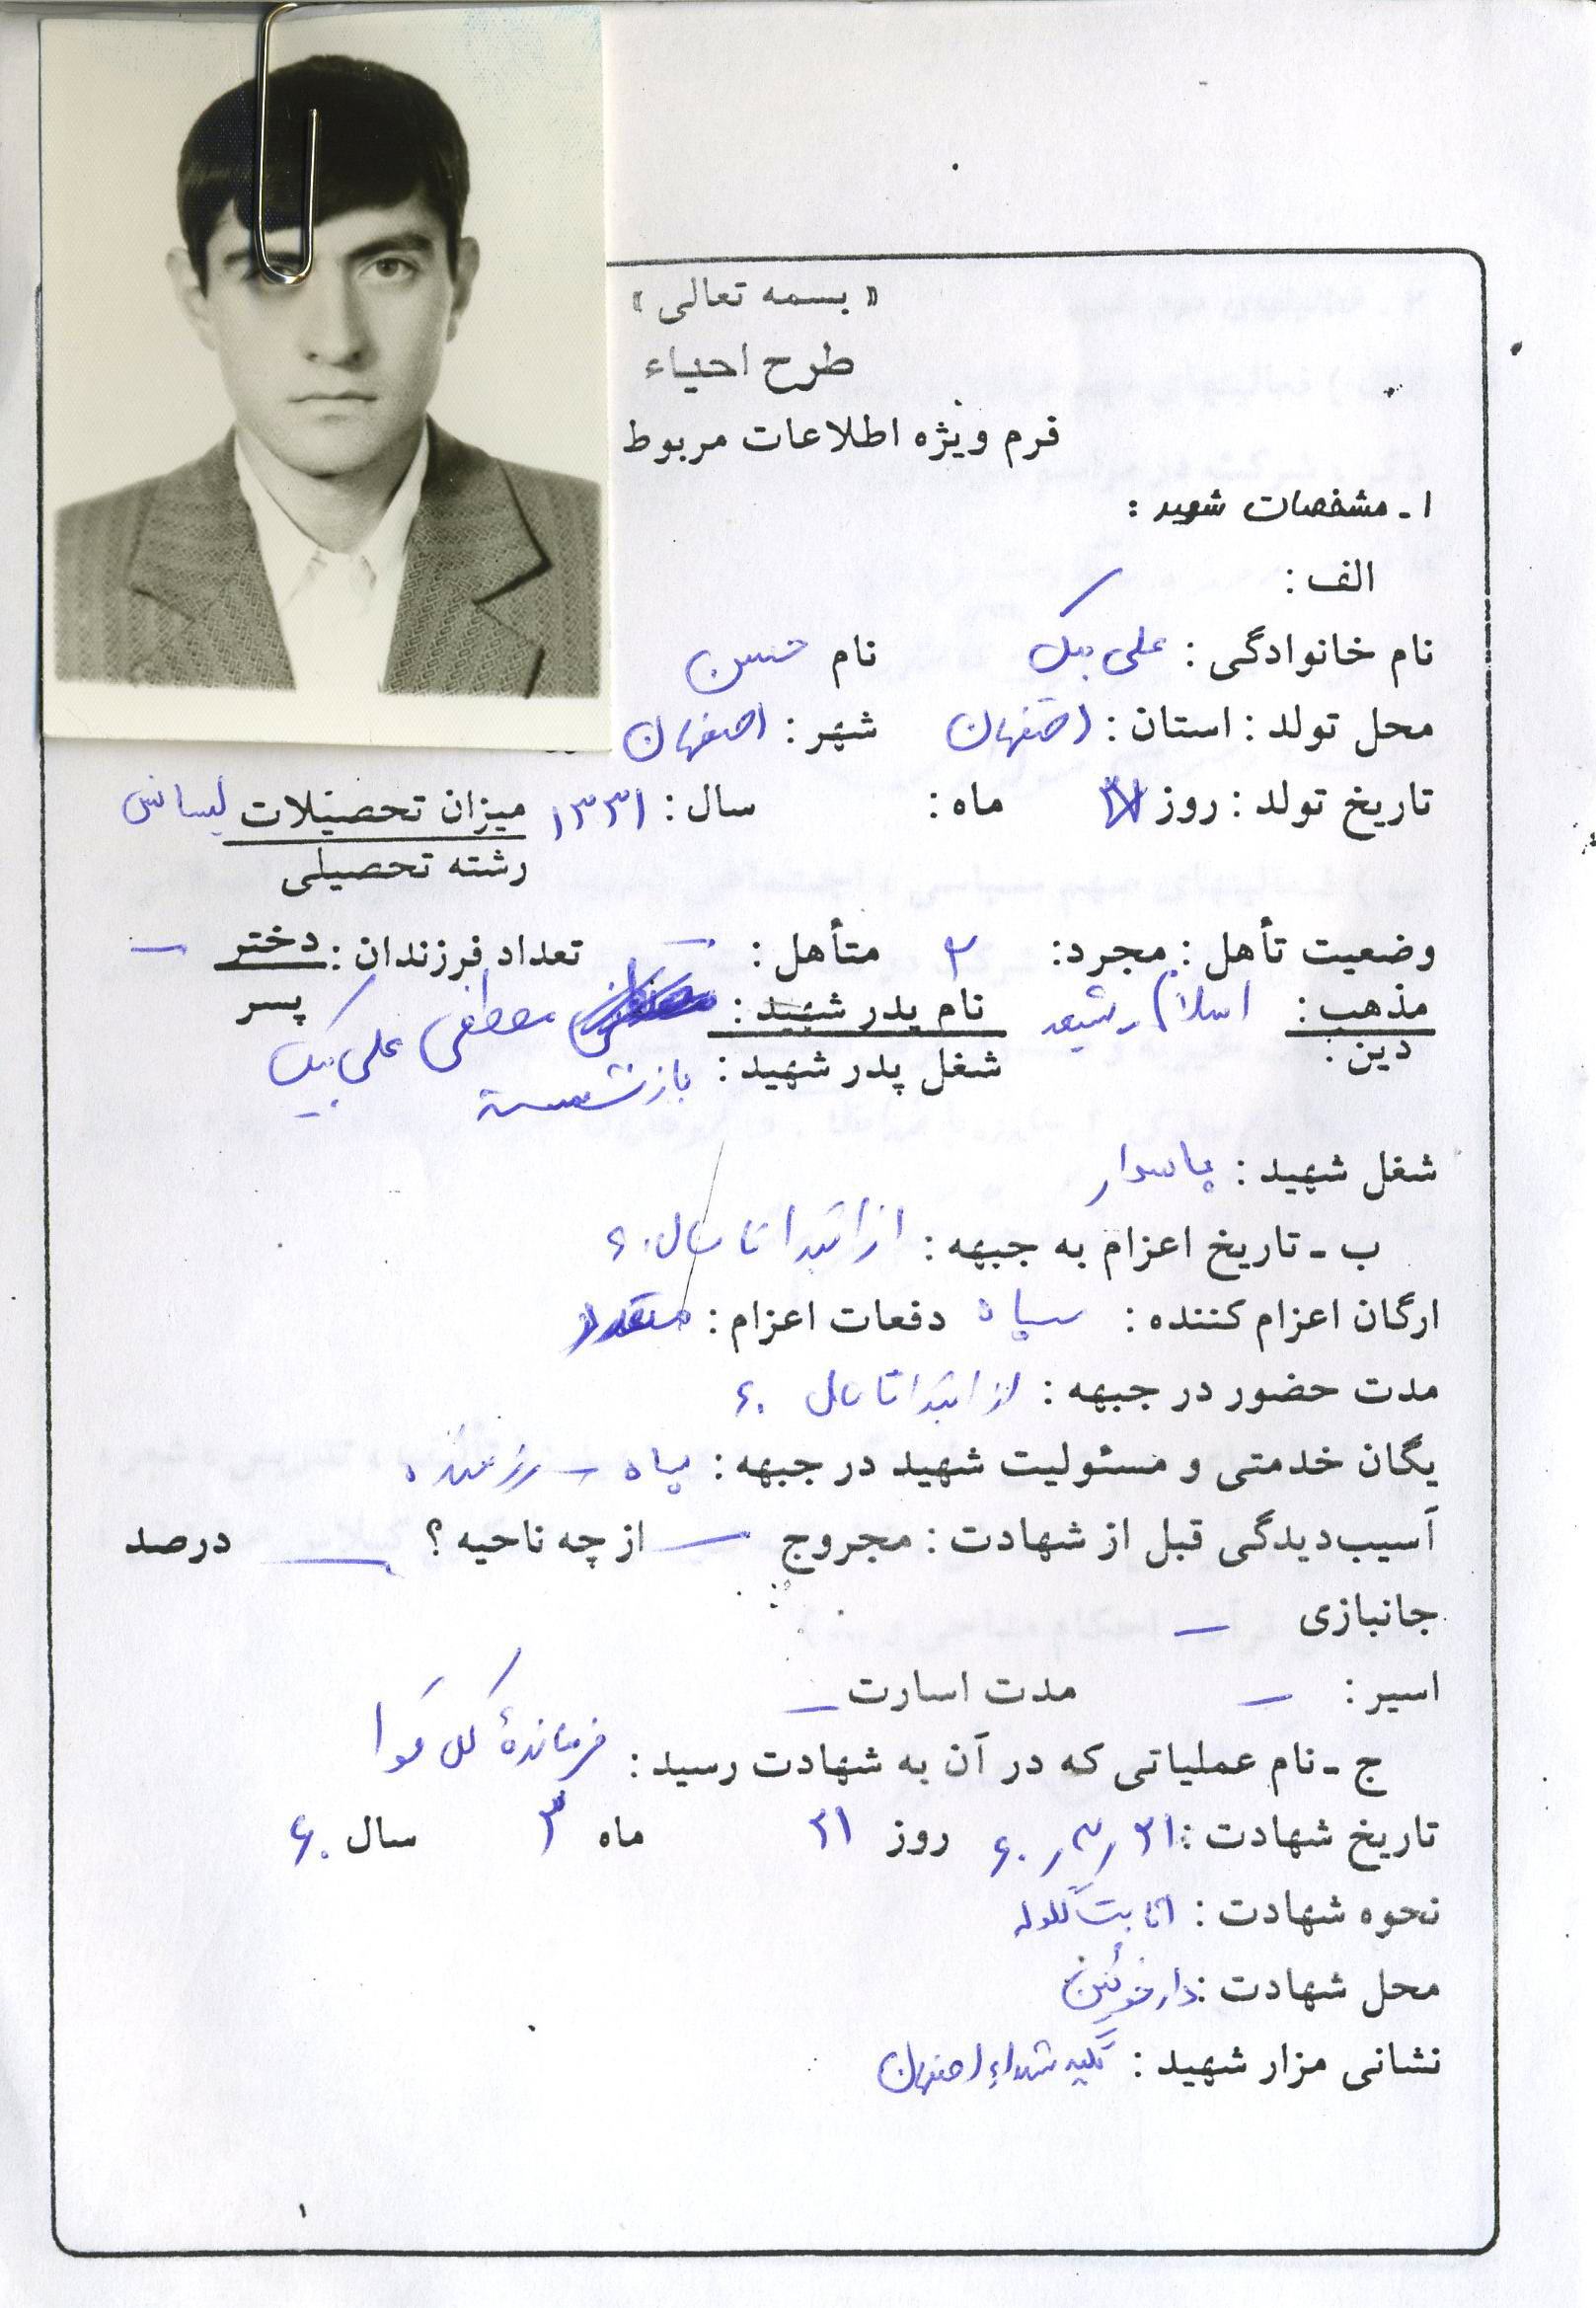 « بسمه تعالی »
طرح احیاء
فرم ویژه اطلاعات مربوط
۱ـ مشخصات شهید :
الف :
نام خانوادگی : علی بیک نام حسن
محل تولد : استان : اصفهان شهر : اصفهان
تاریخ تولد : روز ماه : سال : ۱۳۳۱ میزان تحصیلات لیسانس
رشته تحصیلی
وضعیت تأهل : مجرد: متأهل : — تعداد فرزندان : دختر —
پسر
مذهب : اسلام ـ شیعه نام پدر شهید : مصطفی علی بیک
دین : شغل پدر شهید : بازنشسته
شغل شهید : پاسدار
ب ـ تاریخ اعزام به جبهه : از ابتدا تا سال ۶۰
ارگان اعزام کننده : سپاه دفعات اعزام :
مدت حضور در جبهه : از ابتدا تا سال ۶۰
یگان خدمتی و مسئولیت شهید در جبهه : سپاه — رزمنده
آسیب‌دیدگی قبل از شهادت : مجروح — از چه ناحیه ؟ — درصد
جانبازی —
اسیر : — مدت اسارت —
ج ـ نام عملیاتی که در آن به شهادت رسید : فرماندهٔ کل قوا
تاریخ شهادت : ۲۱ / ۳ / ۶۰ روز ۲۱ ماه ۳ سال ۶۰
نحوه شهادت : اثابت گلوله
محل شهادت : دارخوئین
نشانی مزار شهید : تکیه شهداء اصفهان
۱